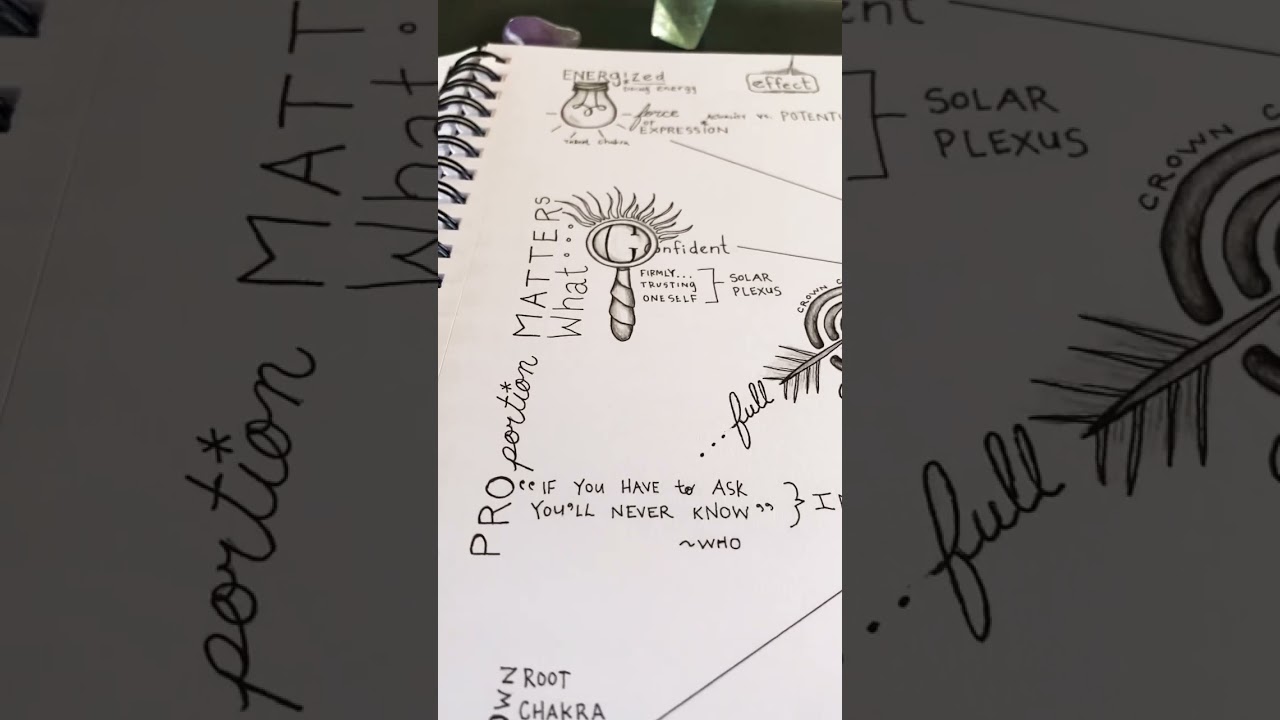 ENERgized
being energy
force
of
EXPRESSION
effect
vs. POTENTI
Chakra
PROportion* MATTERs
What...
Confident
FIRMLY...
TRUSTING
ONESELF
SOLAR
PLEXUS
CROWN
...full
“IF YOU HAVE to ASK
YOU'LL NEVER KNOW”
~WHO
ROOT
CHAKRA
ent
SOLAR
PLEXUS
CROWN C
...full
portion* MATT
What.